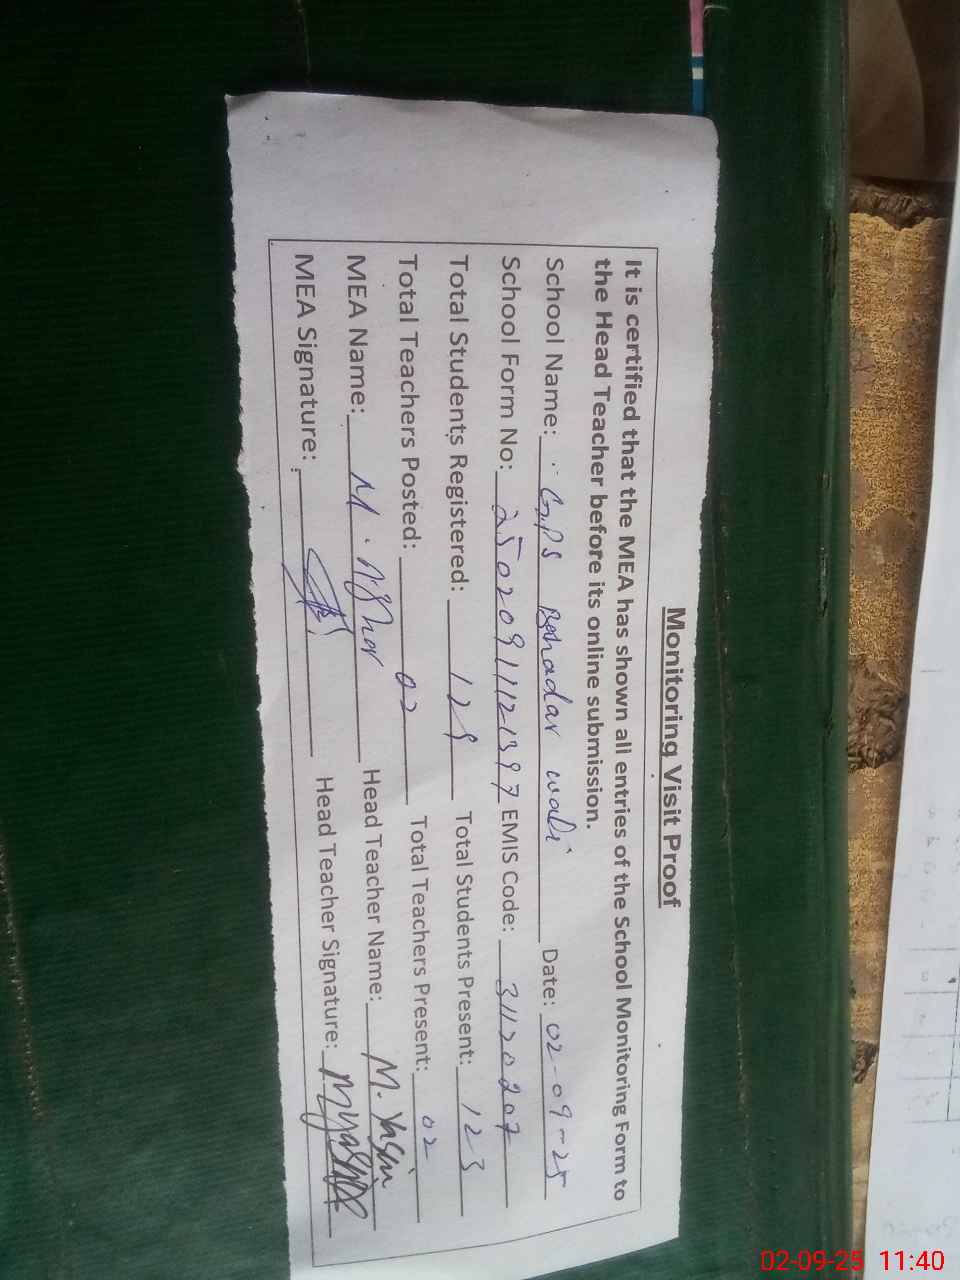 Monitoring Visit Proof
It is certified that the MEA has shown all entries of the School Monitoring Form to
the Head Teacher before its online submission.
School Name: GPS Bahadar wali Date: 02-09-25
School Form No: 25020911121397 EMIS Code: 31120207
Total Students Registered: Total Students Present: 123
Total Teachers Posted: 02 Total Teachers Present: 02
MEA Name: M. Head Teacher Name: M. Yasin
MEA Signature: Head Teacher Signature: MYasin
02-09-25 11:40